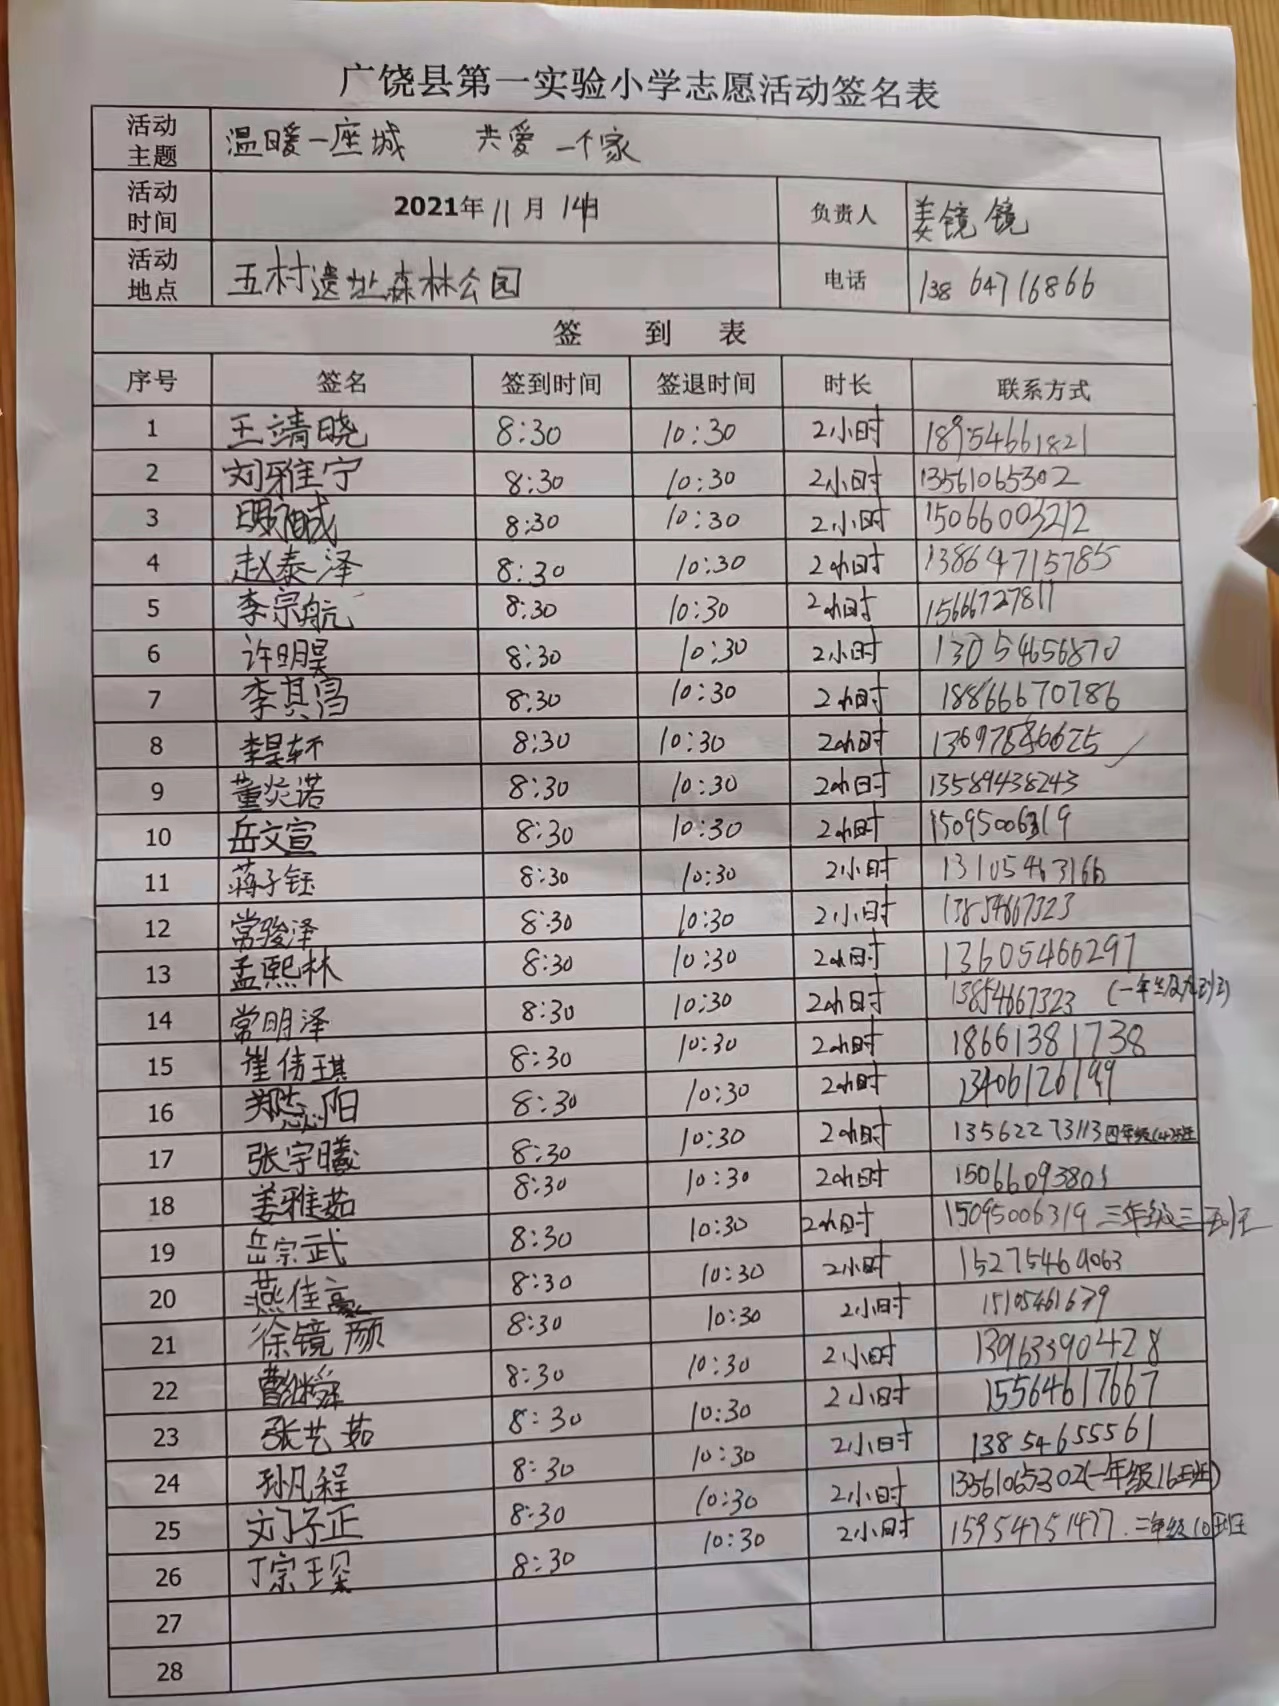 广饶县第一实验小学志愿活动签名表
活动主题 温暖一座城 共爱一个家
活动时间 2021年11月14日 负责人 姜镜镜
活动地点 五村遗址森林公园 电话 13864716866
签 到 表
序号 签名 签到时间 签退时间 时长 联系方式
1 王靖晓 8:30 10:30 2小时 18954661821
2 刘雅宁 8:30 10:30 2小时 13561065302
3 8:30 10:30 2小时 15066003212
4 赵泰泽 8:30 10:30 2小时 13864715785
5 李宗航 8:30 10:30 2小时 15666727811
6 许明昊 8:30 10:30 2小时 13054656870
7 李其富 8:30 10:30 2小时 18866670786
8 李昊轩 8:30 10:30 2小时
9 董炎诺 8:30 10:30 2小时 13589438243
10 岳文宣 8:30 10:30 2小时 15095006319
11 蒋子钰 8:30 10:30 2小时 13105463166
12 常骏泽 8:30 10:30 2小时 13854667323
13 孟熙林 8:30 10:30 2小时 13605466297
14 常明泽 8:30 10:30 2小时 13854667323 (一年级九班)
15 崔倩琪 8:30 10:30 2小时 18661381738
16 郑懿阳 8:30 10:30 2小时 13406126199
17 张宇曦 8:30 10:30 2小时 13562273113 四年级(4)班
18 姜雅茹 8:30 10:30 2小时 15066093801
19 岳宗武 8:30 10:30 2小时 15095006319 三年级三班
20 燕佳豪 8:30 10:30 2小时 15275469063
21 徐镜颜 8:30 10:30 2小时 15105461679
22 8:30 10:30 2小时 13963390428
23 张艺茹 8:30 10:30 2小时 15564617667
24 孙凡程 8:30 10:30 2小时 13854655561
25 刘子正 8:30 10:30 2小时 13561065302(一年级16班)
26 丁宗琛 8:30 10:30 2小时 15954751477.二年级10班
27
28